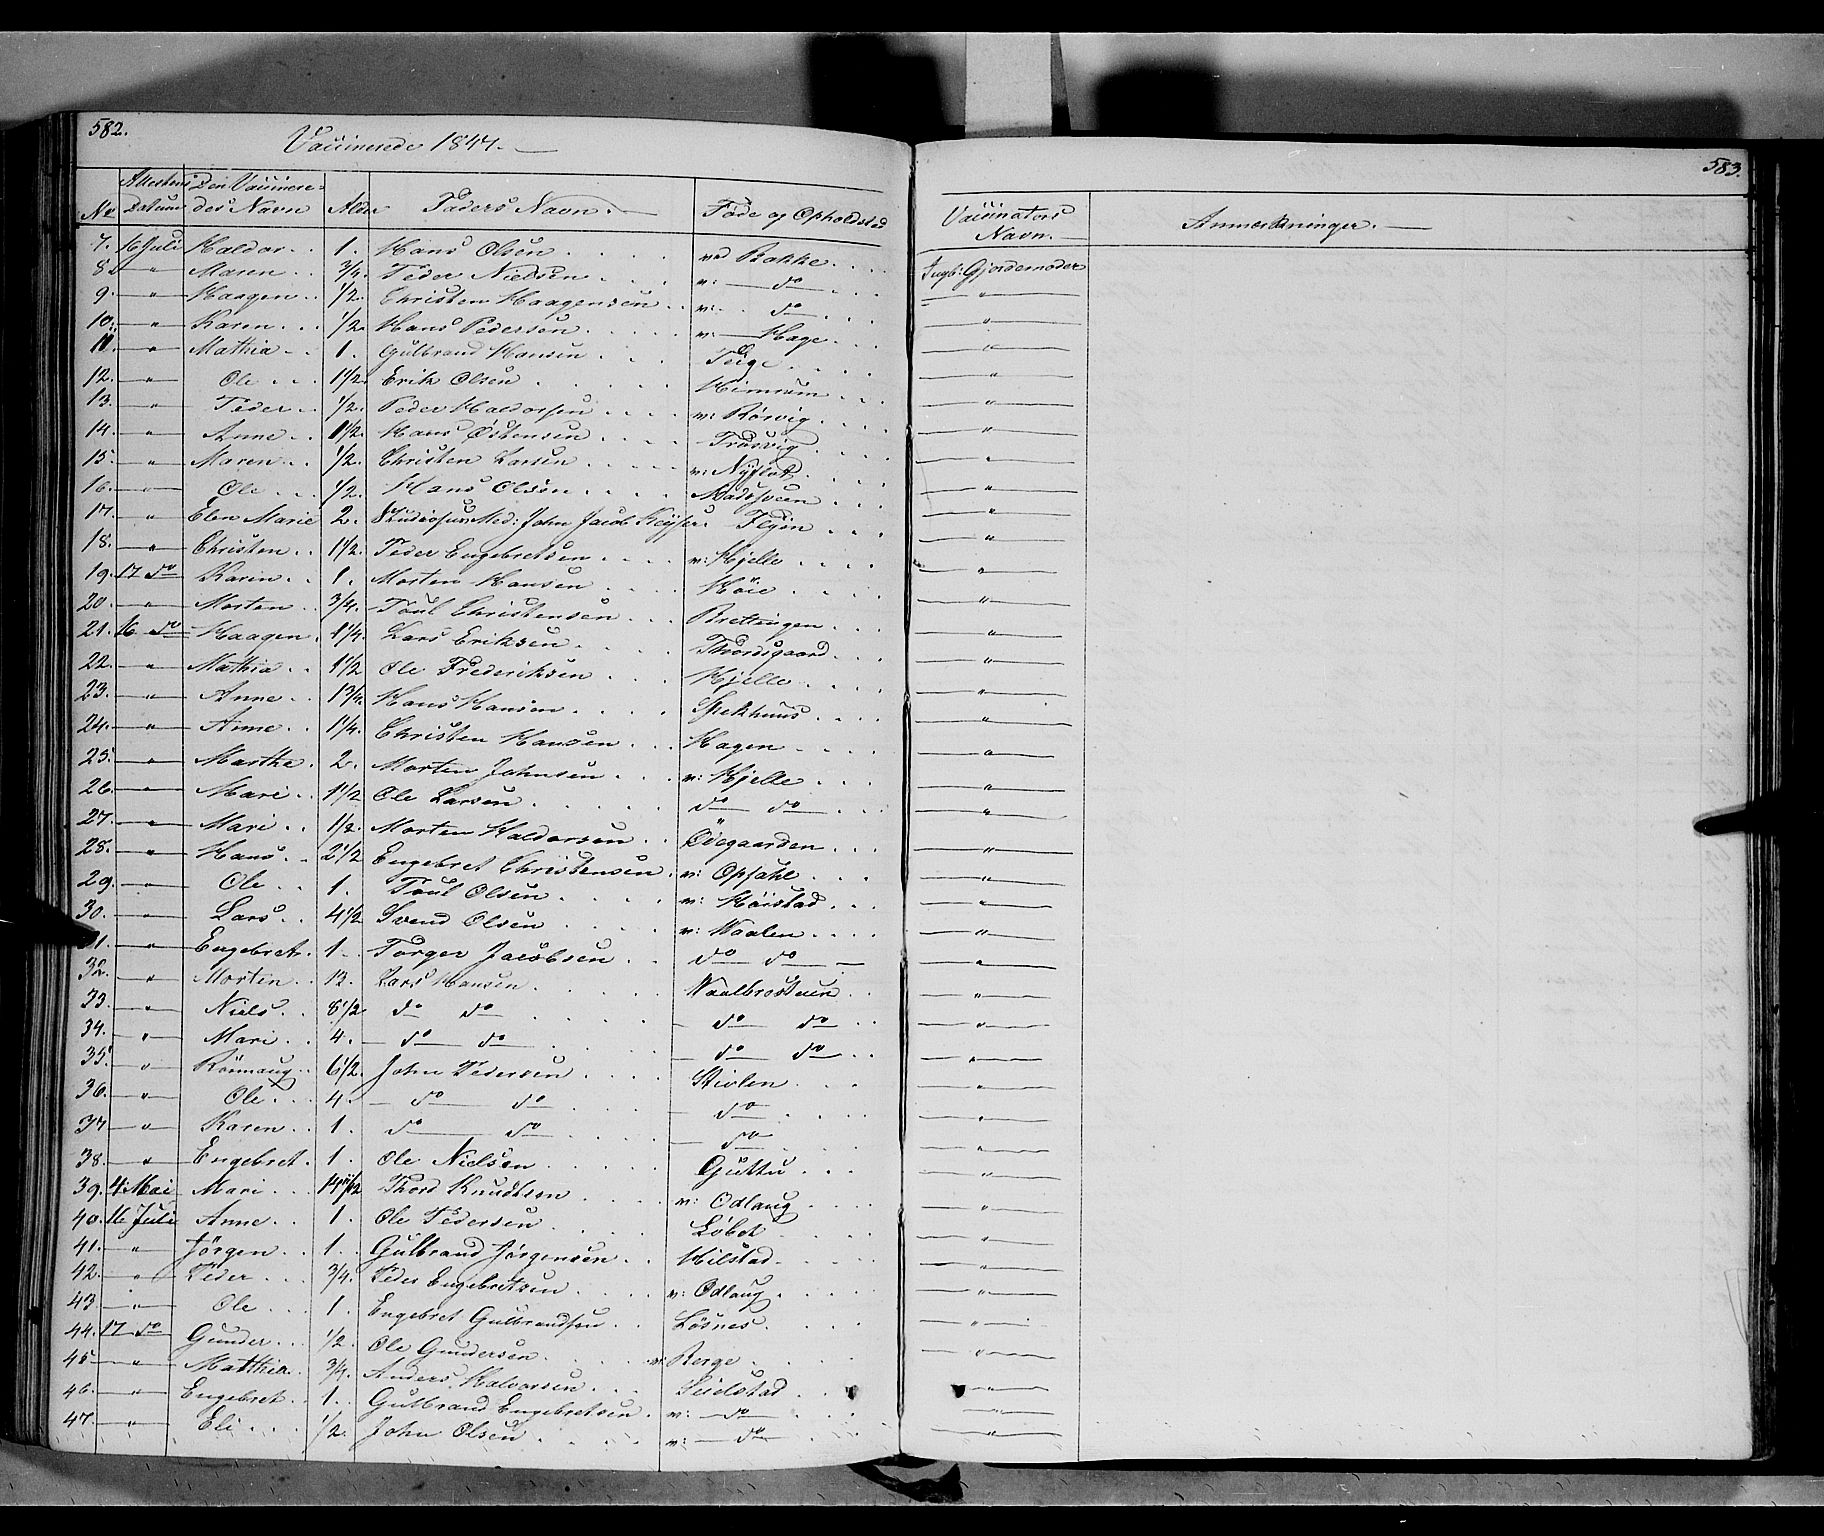 582.
Vaccinerede 1844.
No | Attestens Datum | Den Vaccineredes Navn | Alder | Faders Navn. | Føde og Opholdssted | Vaccinators Navn. | Anmærkninger.
583.
7. 16 Juli Haldor 1. Hans Olsen ved Bakke Ingb: Gjordemoder
8. " Maren 3/4. Peder Nielsen v: do "
9. " Haagen 1/2. Christen Haagensen v: do "
10. " Karen 1/2. Hans Pedersen v: Hage "
11. " Mathia 1. Gulbrand Hansen Teige "
12. " Ole 1 1/2. Erik Olsen "
13. " Peder 1/2. Peder Haldorsen v: Rörvig "
14. " Anne 1 1/2. Hans Östensen Trösvig "
15. " Maren 1/2. Christen Larsen v: Nyflot "
16. " Ole 1/2. Hans Olsen Madssveen "
17. " Elen Marie 2. Studiosus Med: John Jacob Keyser. "
18. " Christen 1 1/2. Peder Engebretsen v: Hjelle "
19. 17 do Karen 1. Morten Hansen Höie "
20. " Morten 3/4. Poul Christensen Brettingen "
21. 16 do Haagen 1 1/4. Lars Eriksen Thordsgaard "
22. " Mathia 1 1/2 Ole Frederiksen Hjelle "
23. " Anne 1 3/4. Hans Hansen Spekhuus "
24. " Anne 1 1/4. Christen Hansen Hagen "
25. " Marthe 2. Morten Johnsen v: Hjelle "
26. " Mari 1 1/2 Ole Larsen do do "
27. " Mari 1/2. Morten Haldorsen Ödegaarden "
28. " Hans 2 1/2 Engebret Christensen v: Opsahl "
29. " Ole 1. Poul Olsen v: Höistad "
30. " Lars 4 1/2 Svend Olsen v: Waalen "
31. " Engebret 1. Torger Jacobsen do do "
32. " Morten 12. Lars Hansen Waalbrosveen "
33. " Niels 8 1/2 do do do do "
34. " Mari 4. do do do do "
35. " Rönnaug 6 1/2 John Pedersen Stivlen "
36. " Ole 4. do do do "
37 " Karen 1. do do do "
38. " Engebret 1. Ole Nielsen Guttu "
39. 4. Mai Mari Thord Knudtsen v: Odlaug "
40. 16 Juli Anne 1. Ole Pedersen Löbet "
41. " Jörgen 1. Gulbrand Jörgensen Hilstad "
42. " Peder 3/4. Peder Engebretsen v: Odlaug "
43 " Ole 1. Engebret Gulbrandsen Lösnes "
44. 17 do Gunder 1/2. Ole Gundersen v: Berge "
45 " Matthia 3/4. Anders Halvorsen "
46. " Engebret 1. Gulbrand Engebretsen v: do "
47. " Eli 1/2. John Olsen v: do "